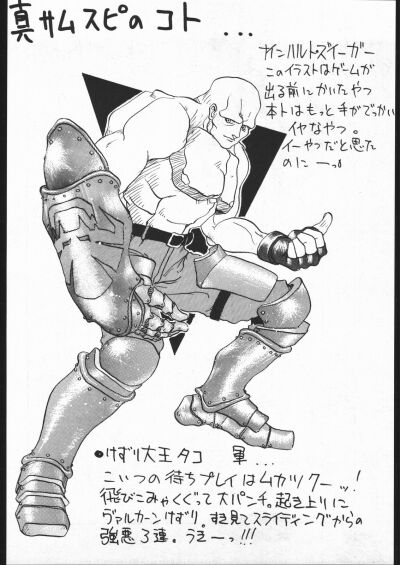 真サムスピのコト ...
ナインハルト・ズィーガー
このイラストはゲームが
出る前にかいたやつ
本トはもっと手がでっかい
イヤなやつ。
イーやつだと思た
のにーっ。
●けずり大王タコ 軍...
こいつの待ちプレイはムカツクーッ!
飛びこみゃくぐって大パンチ。起き上りに
ヴァルカーンけずり。すき見てスライディングからの
強悪3連。うきーっ!!!